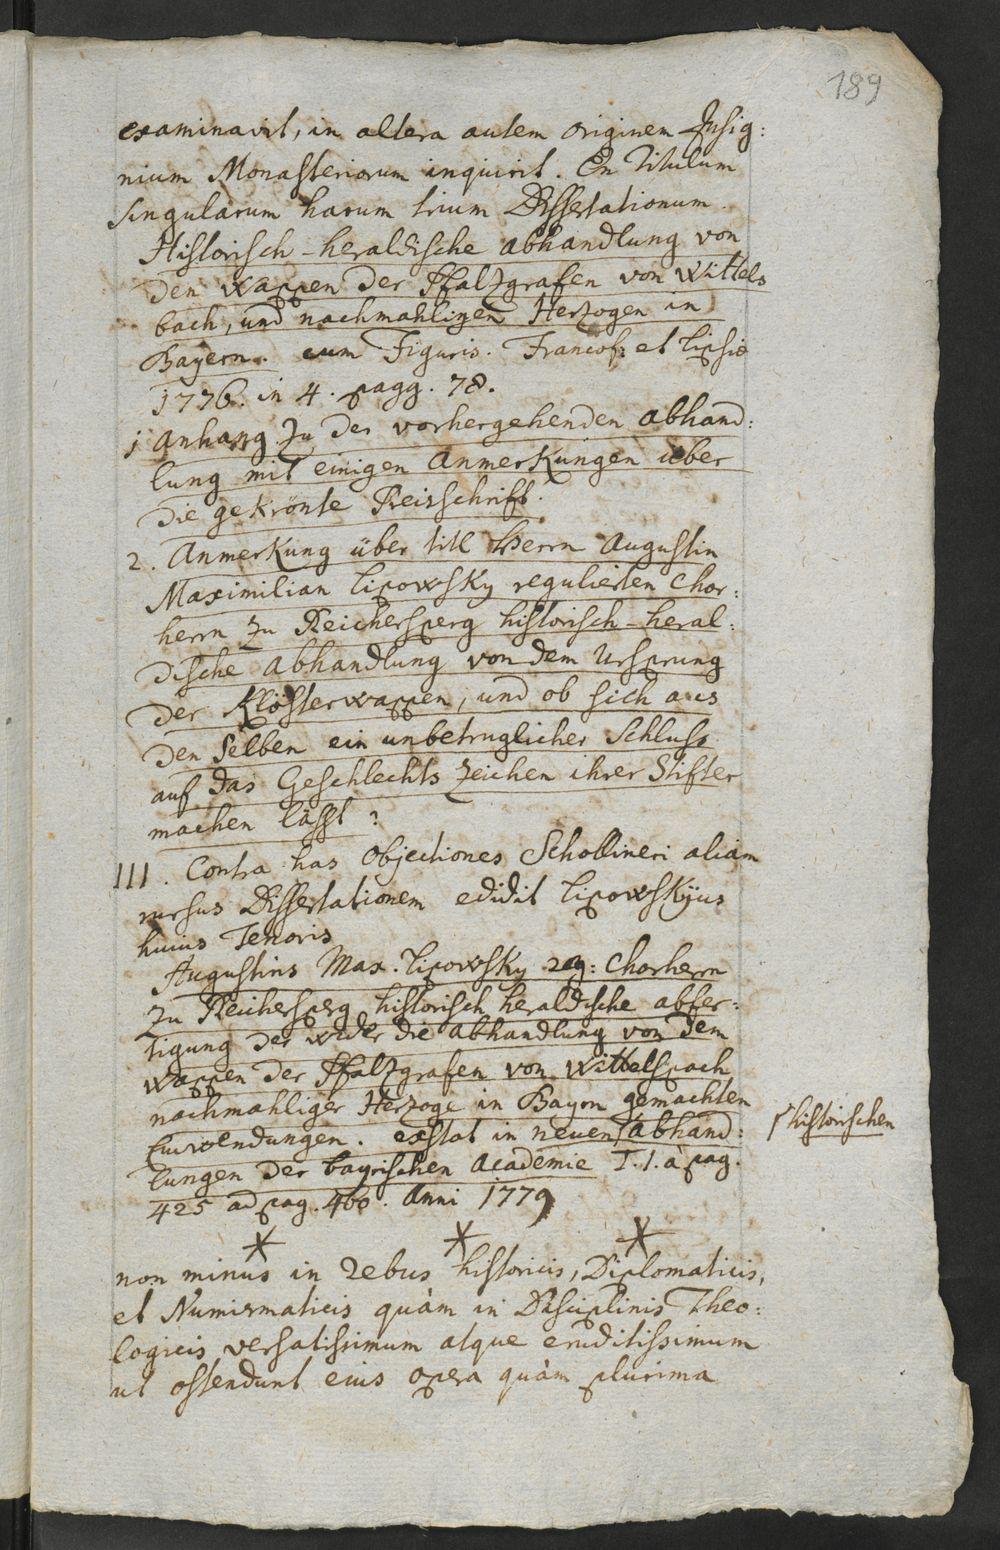 189
examinavit, in altera autem originem Insig:
nium Monasteriorum inquirit. En Titulum
singularum harum trium Dissertationum.
Historisch-heraldische abhandlung von
den wappen der Pfalzgrafen von Wittels
bach, und nachmahligen Herzogen in
Bayern. cum Figuris. Francof: et Lipsiæ
1776. in 4. pagg. 78.
1 Anhang zu der vorhergehenden abhand:
lung mit einigen Anmerkungen ueber
die gekrönte Preisschrift.
2. Anmerkung über titl Herrn Augustin
Maximilian Lipowsky regulierten Chor:
herrn zu Reichersperg historisch-heral:
dische abhandlung von dem Ursprung
der Klösterwappen, und ob sich aus
den selben ein unbetruglicher Schluss
auf das Geschlechts zeichen ihrer Stifter
machen lässt?
III. Contra has Objectiones Schollineri aliam
rursus Dissertationem edidit Lipowskÿus
huius Tenoris
Augustins Max. Lipowsky reg: Chorherrn
zu Reichersperg historisch heraldische abfer:
tigung der wider die abhandlung von dem
wappen der Pfalzgrafen von Wittelspach
nachmahliger Herzoge in Bayrn gemachten
Einwendungen. exstat in neuen ſ abhand:
ſ historischen
lungen der bayrischen academie T. 1. à pag.
425 ad pag. 460. Anni 1779
* * *
non minus in rebus historicis, Diplomaticis,
et Numismaticis quàm in Disciplinis Theo:
logicis versatissimum atque eruditissimum
ut ostendunt eius opera quàm plurima